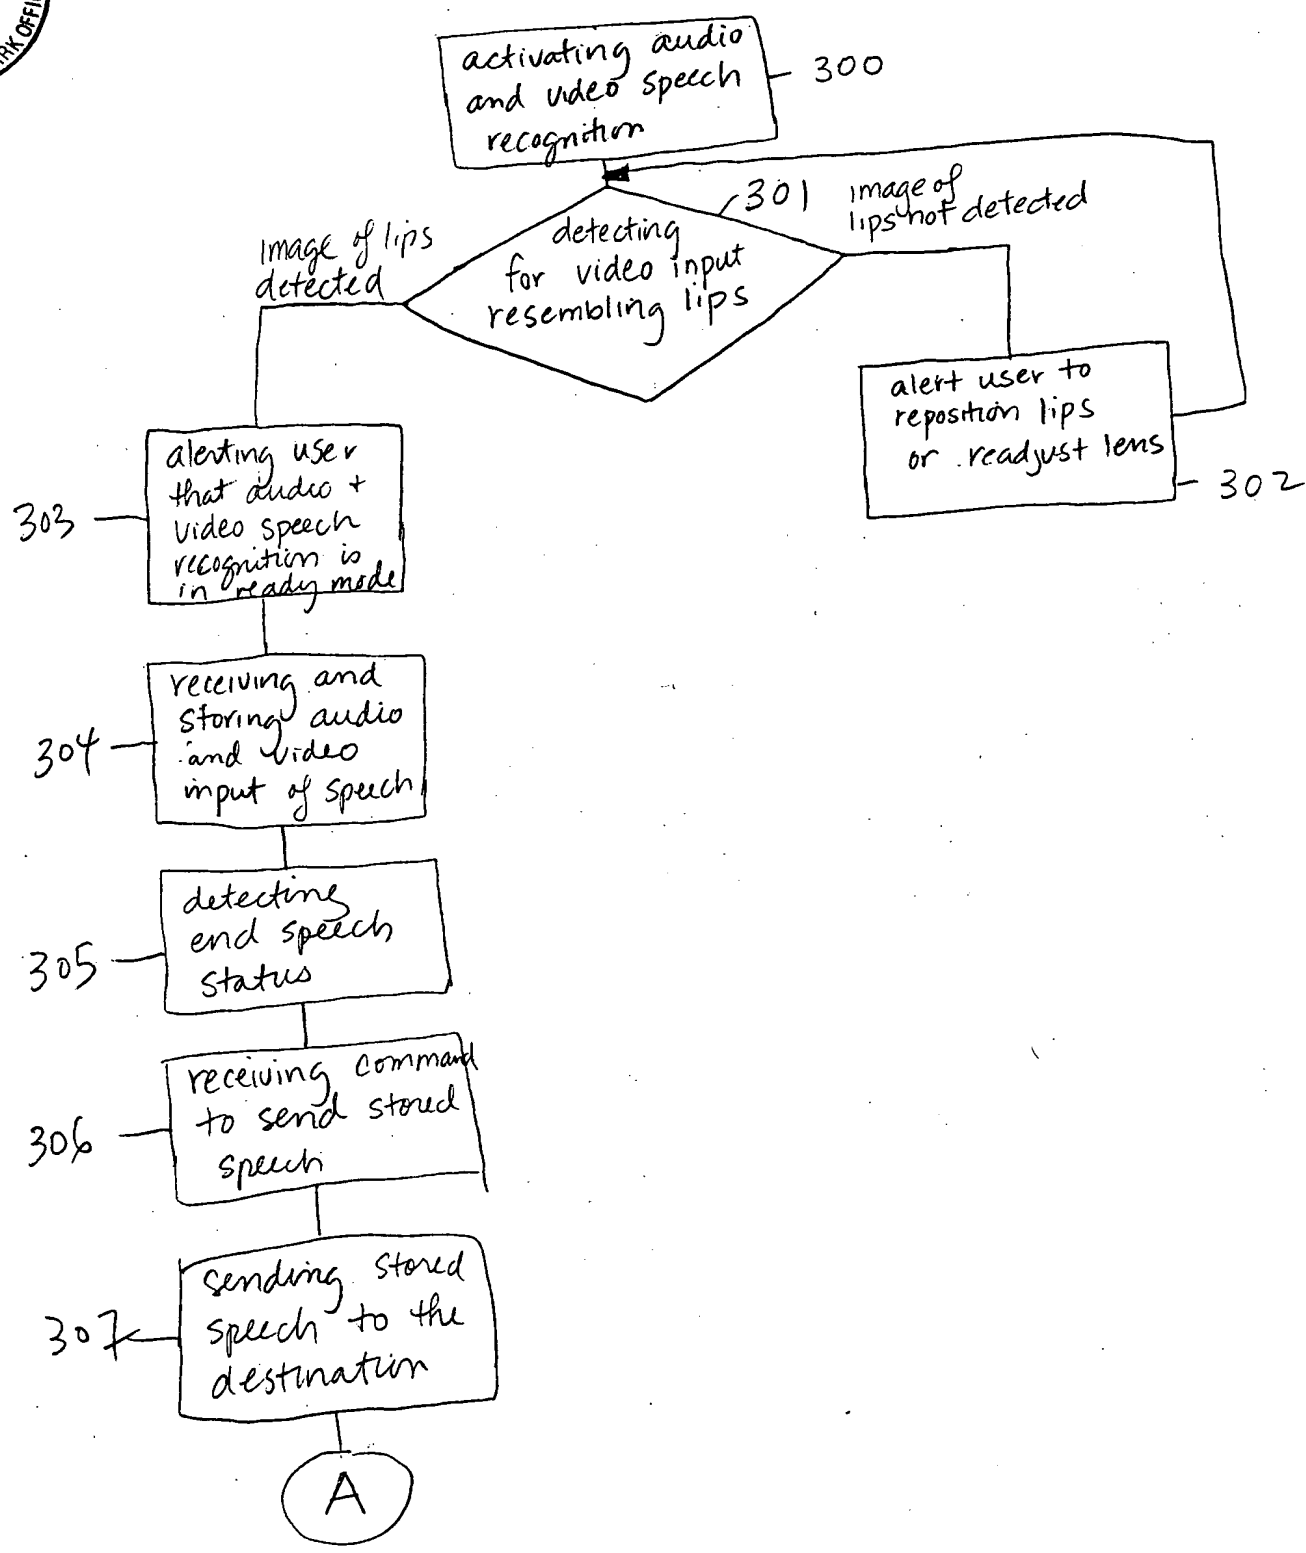 RK OFFI
activating audio
and video speech
recognition
300
301
image of
lips not detected
Image of lips
detected
detecting
for video input
resembling lips
alert user to
reposition lips
or readjust lens
302
alerting user
that audio +
video speech
recognition is
in ready mode
303
receiving and
storing audio
and video
input of speech
304
detecting
end speech
status
305
receiving command
to send stored
speech
306
sending stored
speech to the
destination
307
A